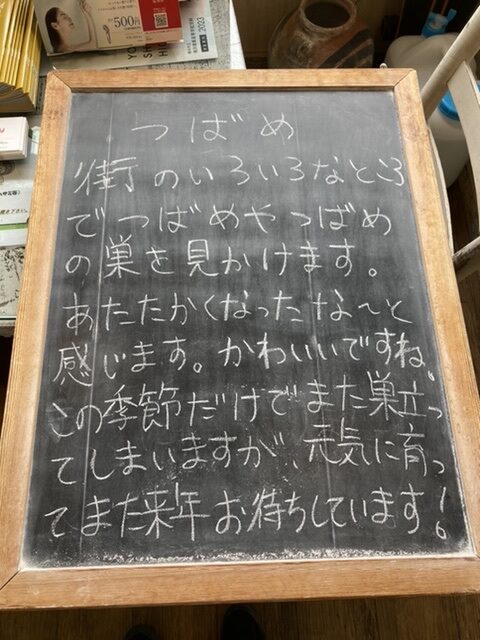 500円
2023
つばめ
街のいろいろなところ
でつばめやつばめ
の巣を見かけます。
あたたかくなったな〜と
感じます。かわいいですね。
この季節だけでまた巣立っ
てしまいますが、元気に育っ
てまた来年お待ちしています!